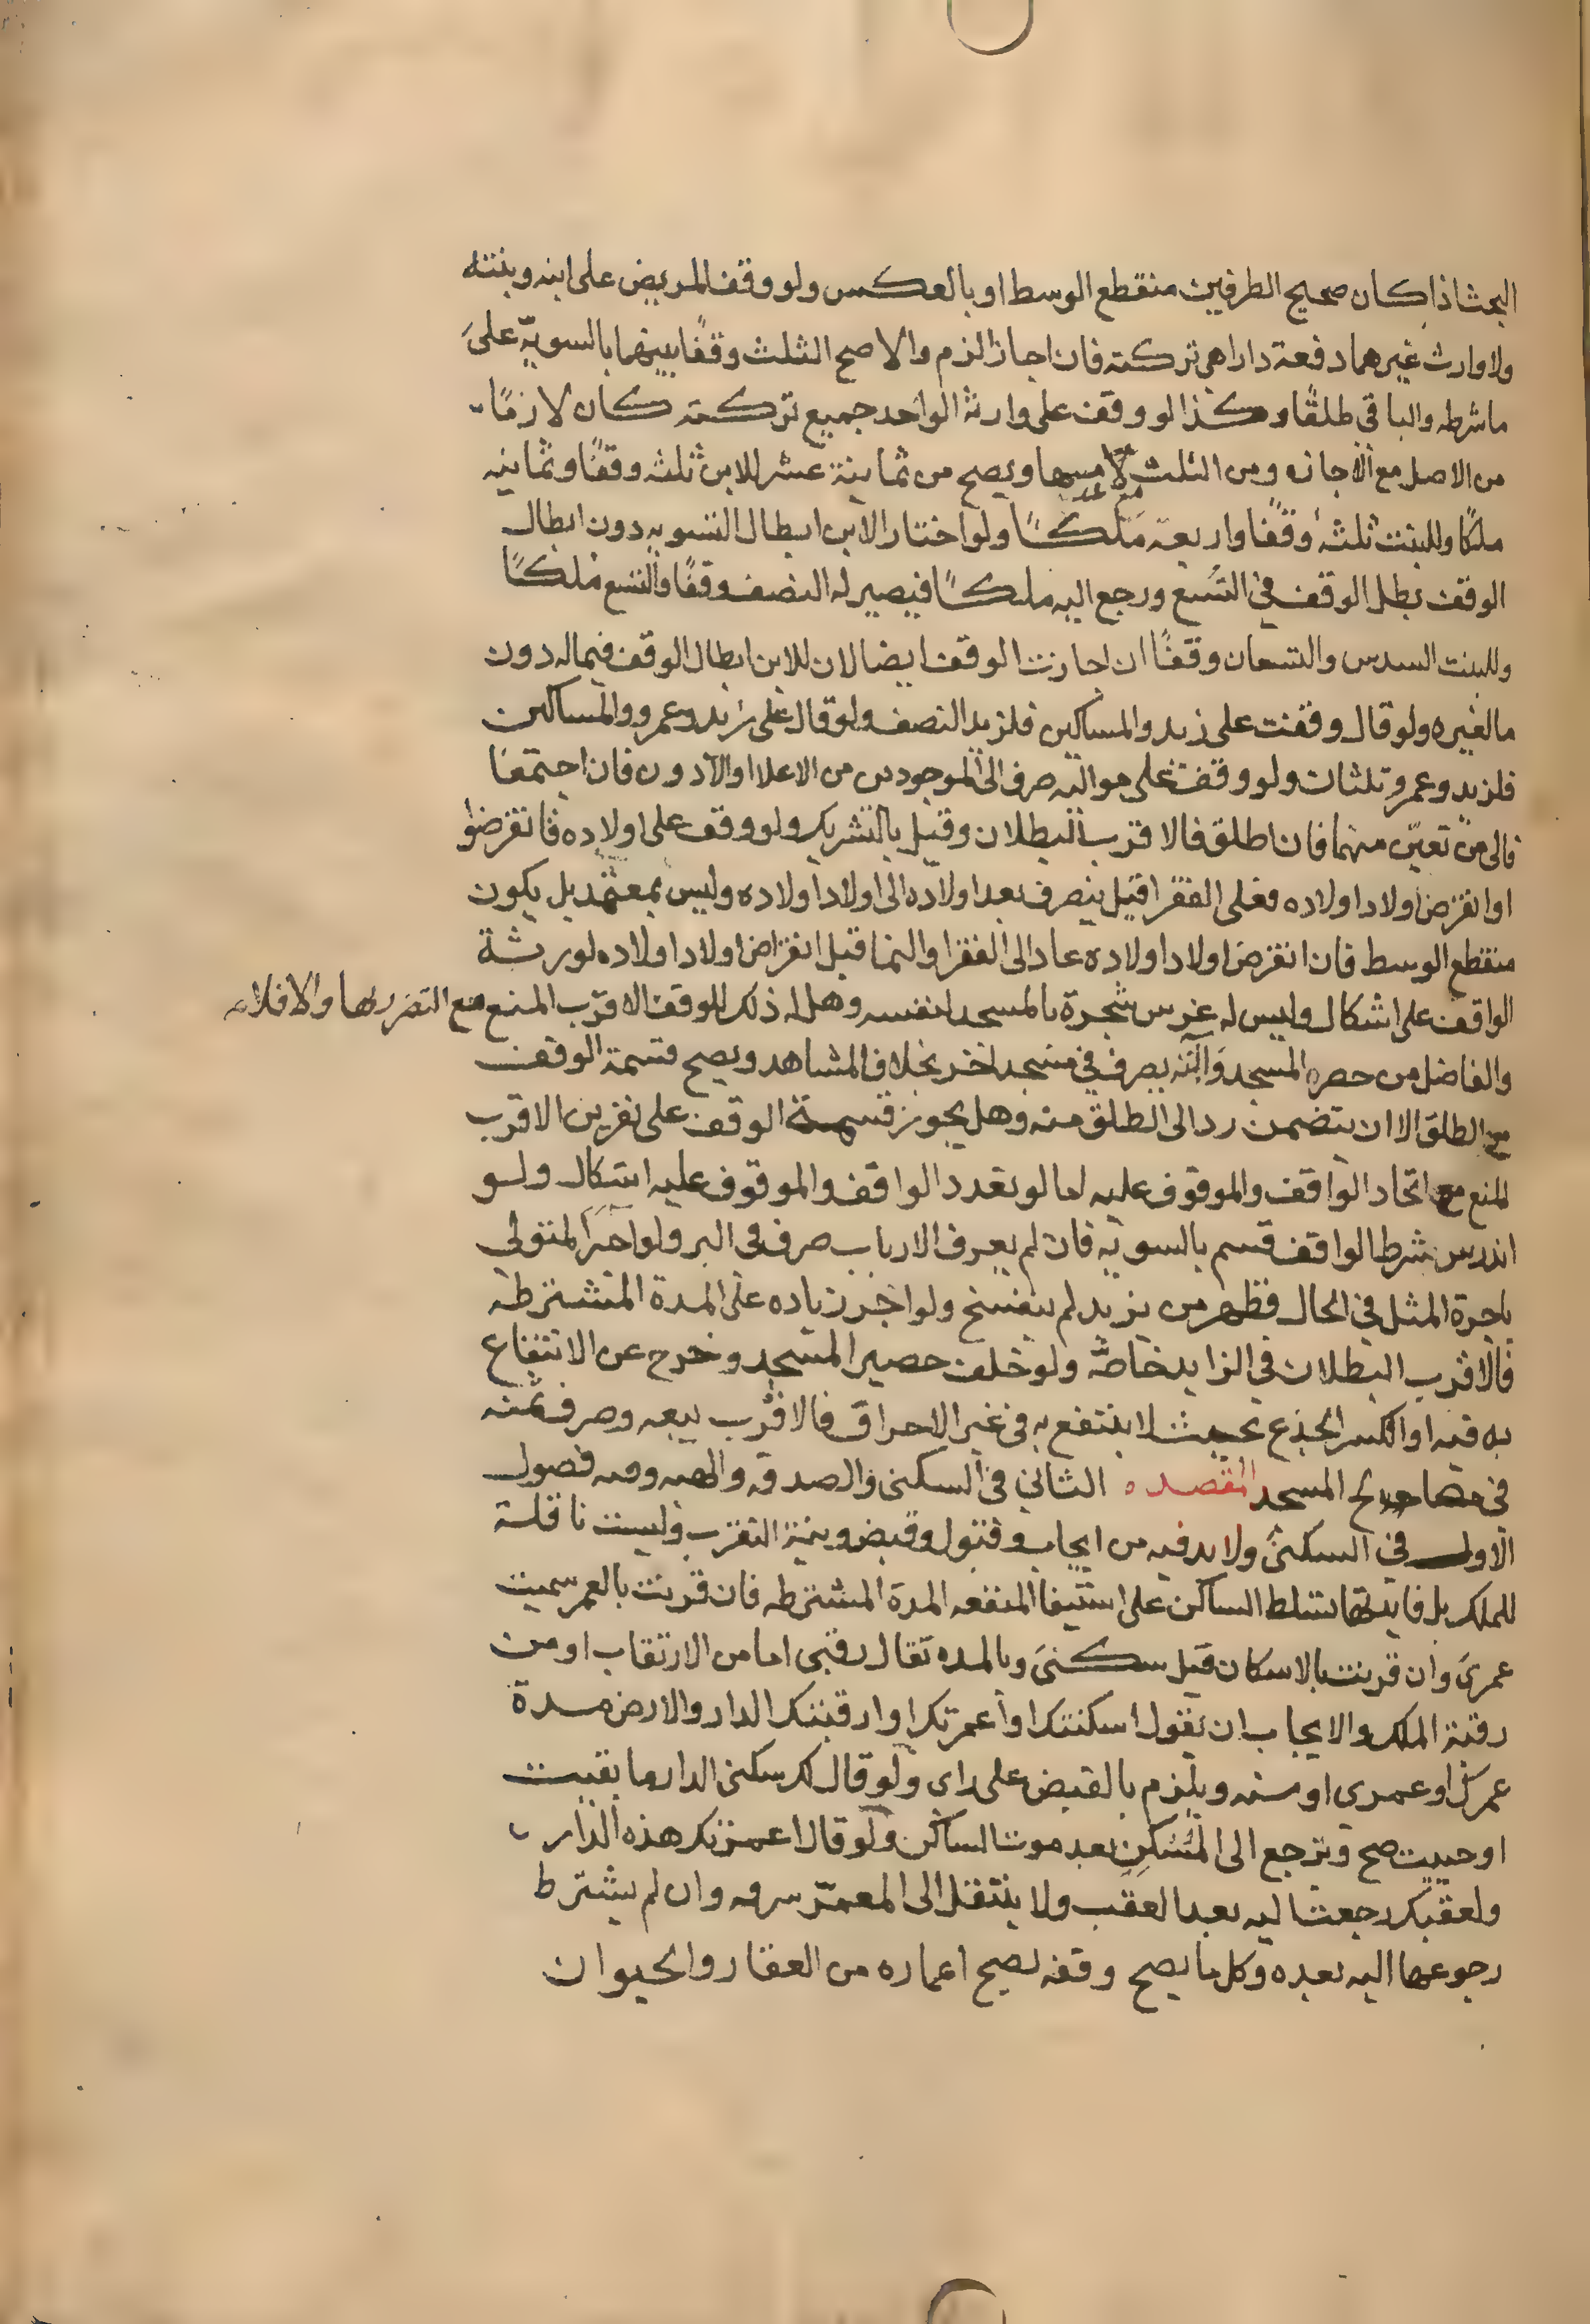 البحث اذا كان صحيح الطرفين منقطع الوسط او بالعكس ولو وقف المريض على ابنه وبنته
ولا وارث غيرهما دفعة دارا هي تركته فان اجازا لزم والا صح الثلث وقفًا بينهما بالسويّة علىَ
ما شرطه والباقي طلقًا وهكذا لو وقف على وارثه الواحد جميع تركته كان لازمًا
من الاصل مع الاجازه ومن الثلث لا مع عدمها ويصح من ثمانية عشر للابن ثلثه وقفًا وثمانيه
ملكًا وللبنت ثلثه وقفًا واربعة ملكًا ولو اختار الابن ابطال التسويه دون ابطال
الوقف بطل الوقف في التُسع ورجع اليه ملكًا فيصير له النصف وقفًا والتسع ملكًا
وللبنت السدس والتسعان وقفًا ان اجازت الوقف ايضا لان للابن ابطال الوقف فيما له دون
ما لغيره ولو قال وقفت على زيد والمساكين فلزيد النصف ولو قال على زيد وعمرو والمساكين
فلزيد وعمرو ثلثان ولو وقف على مواليه صرف الى الموجودين من الاعلا او الادون فان اجتمعا
فالى من تعيّن منهما فان اطلق فالاقرب البطلان وقيل بالتشريك ولو وقف على اولاده فانقرضوا
او انقرض اولاد اولاده فعلى الفقرا قيل يصرف بعد اولاده الى اولاد اولاده وليس بمعتمد بل يكون
منقطع الوسط فان انقرض اولاد اولاده عاد الى الفقرا والنما قبل انقراض اولاد اولاده لورثة
الواقف على اشكال وليس له غرس شجرة بالمسجد لنفسه وهل له ذلك للوقف الاقرب المنع مع التضرر بها والا فلا
والفاضل من حصر المسجد وآلته يصرف في مسجد اخر بخلاف المشاهد ويصح قسمة الوقف
مع الطلق الا ان يتضمن ردا الى الطلق منه وهل يجوز قسمة الوقف على نفرين الاقرب
المنع مع اتحاد الواقف والموقوف عليه اما لو تعدد الواقف والموقوف عليه اشكال ولو
اندرس شرط الواقف قسم بالسويّه فان لم يعرف الارباب صرف في البر ولو اجر المتولي
باجرة المثل في الحال فظهر من يزيد لم ينفسخ ولو اجر زياده على المدة المشترطه
فالاقرب البطلان في الزايد خاصّه ولو خلق حصير المسجد وخرج عن الانتفاع
به فيه او انكسر الجذع بحيث لا ينتفع به في غير الاحراق فالاقرب بيعه وصرف ثمنه
في مصالح المسجد المقصد الثاني في السكنى والصدقه والهبه وفيه فصول
الاول في السكنى ولا بد فيه من ايجاب وقبول وقبض ونية التقرب وليست ناقلة
للملك بل فايدتها تسلط الساكن على استيفا المنفعه المدة المشترطه فان قرنت بالعمر سميت
عمرى وان قرنت بالاسكان قيل سكنى وبالمده تقال رقبى اما من الارتقاب او من
رقبة الملك والايجاب ان يقول اسكنتك او اعمرتك او ارقبتك الدار والارض مدة
عمرك او عمري او سنه ويلزم بالقبض على راى ولو قال لك سكنى الدار ما بقيت
او حييت صح وترجع الى المُسْكِنِ بعد موت الساكن ولو قال اعمرتك هذه الدار
ولعقبك رجعت اليه بعد العقب ولا ينتقل الى المعمّر وان لم يشترط
رجوعها اليه بعده وكل ما يصح وقفه يصح اعماره من العقار والحيوان